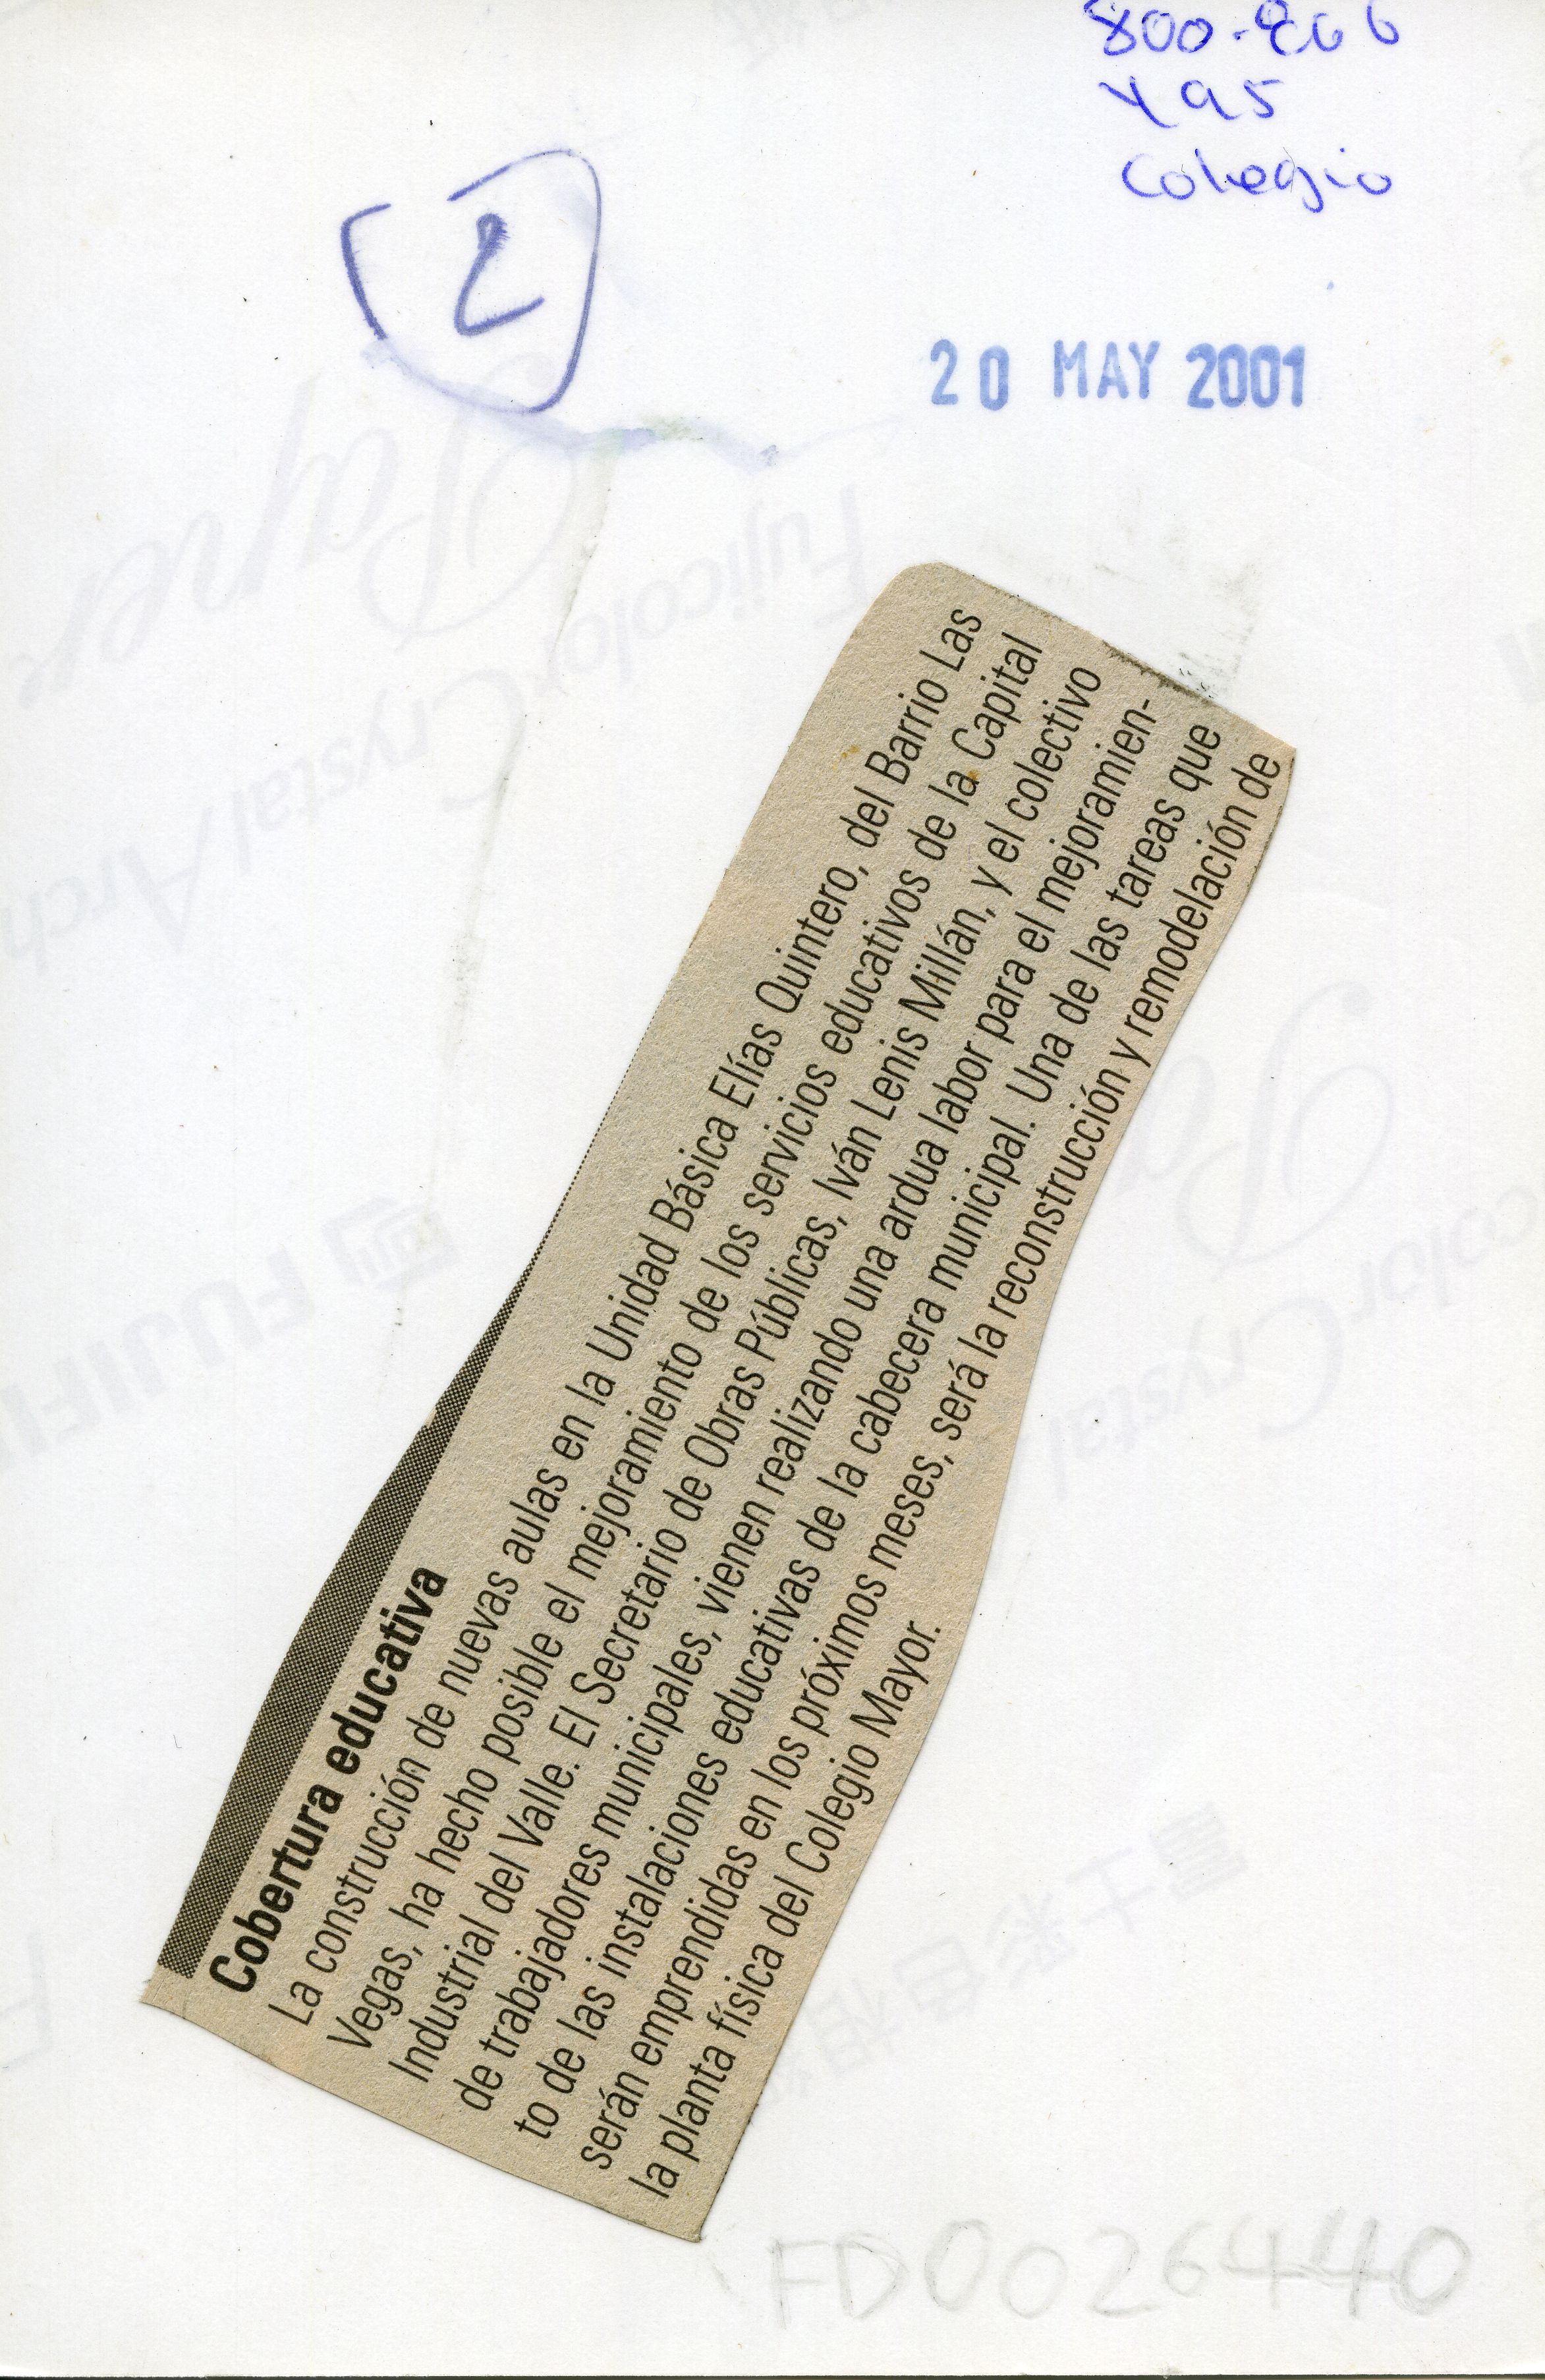 Colegio
2
20 MAY 2001
Cobertura educativa
La construcción de nuevas aulas en la Unidad Básica Elías Quintero, del Barrio Las
Vegas, ha hecho posible el mejoramiento de los servicios educativos de la Capital
Industrial del Valle. El Secretario de Obras Públicas, Iván Lenis Millán, y el colectivo
de trabajadores municipales, vienen realizando una ardua labor para el mejoramien-
to de las instalaciones educativas de la cabecera municipal. Una de las tareas que
serán emprendidas en los próximos meses, será la reconstrucción y remodelación de
la planta física del Colegio Mayor.
FD0026440
Fujicolor
Crystal Arch
Paper
Crystal